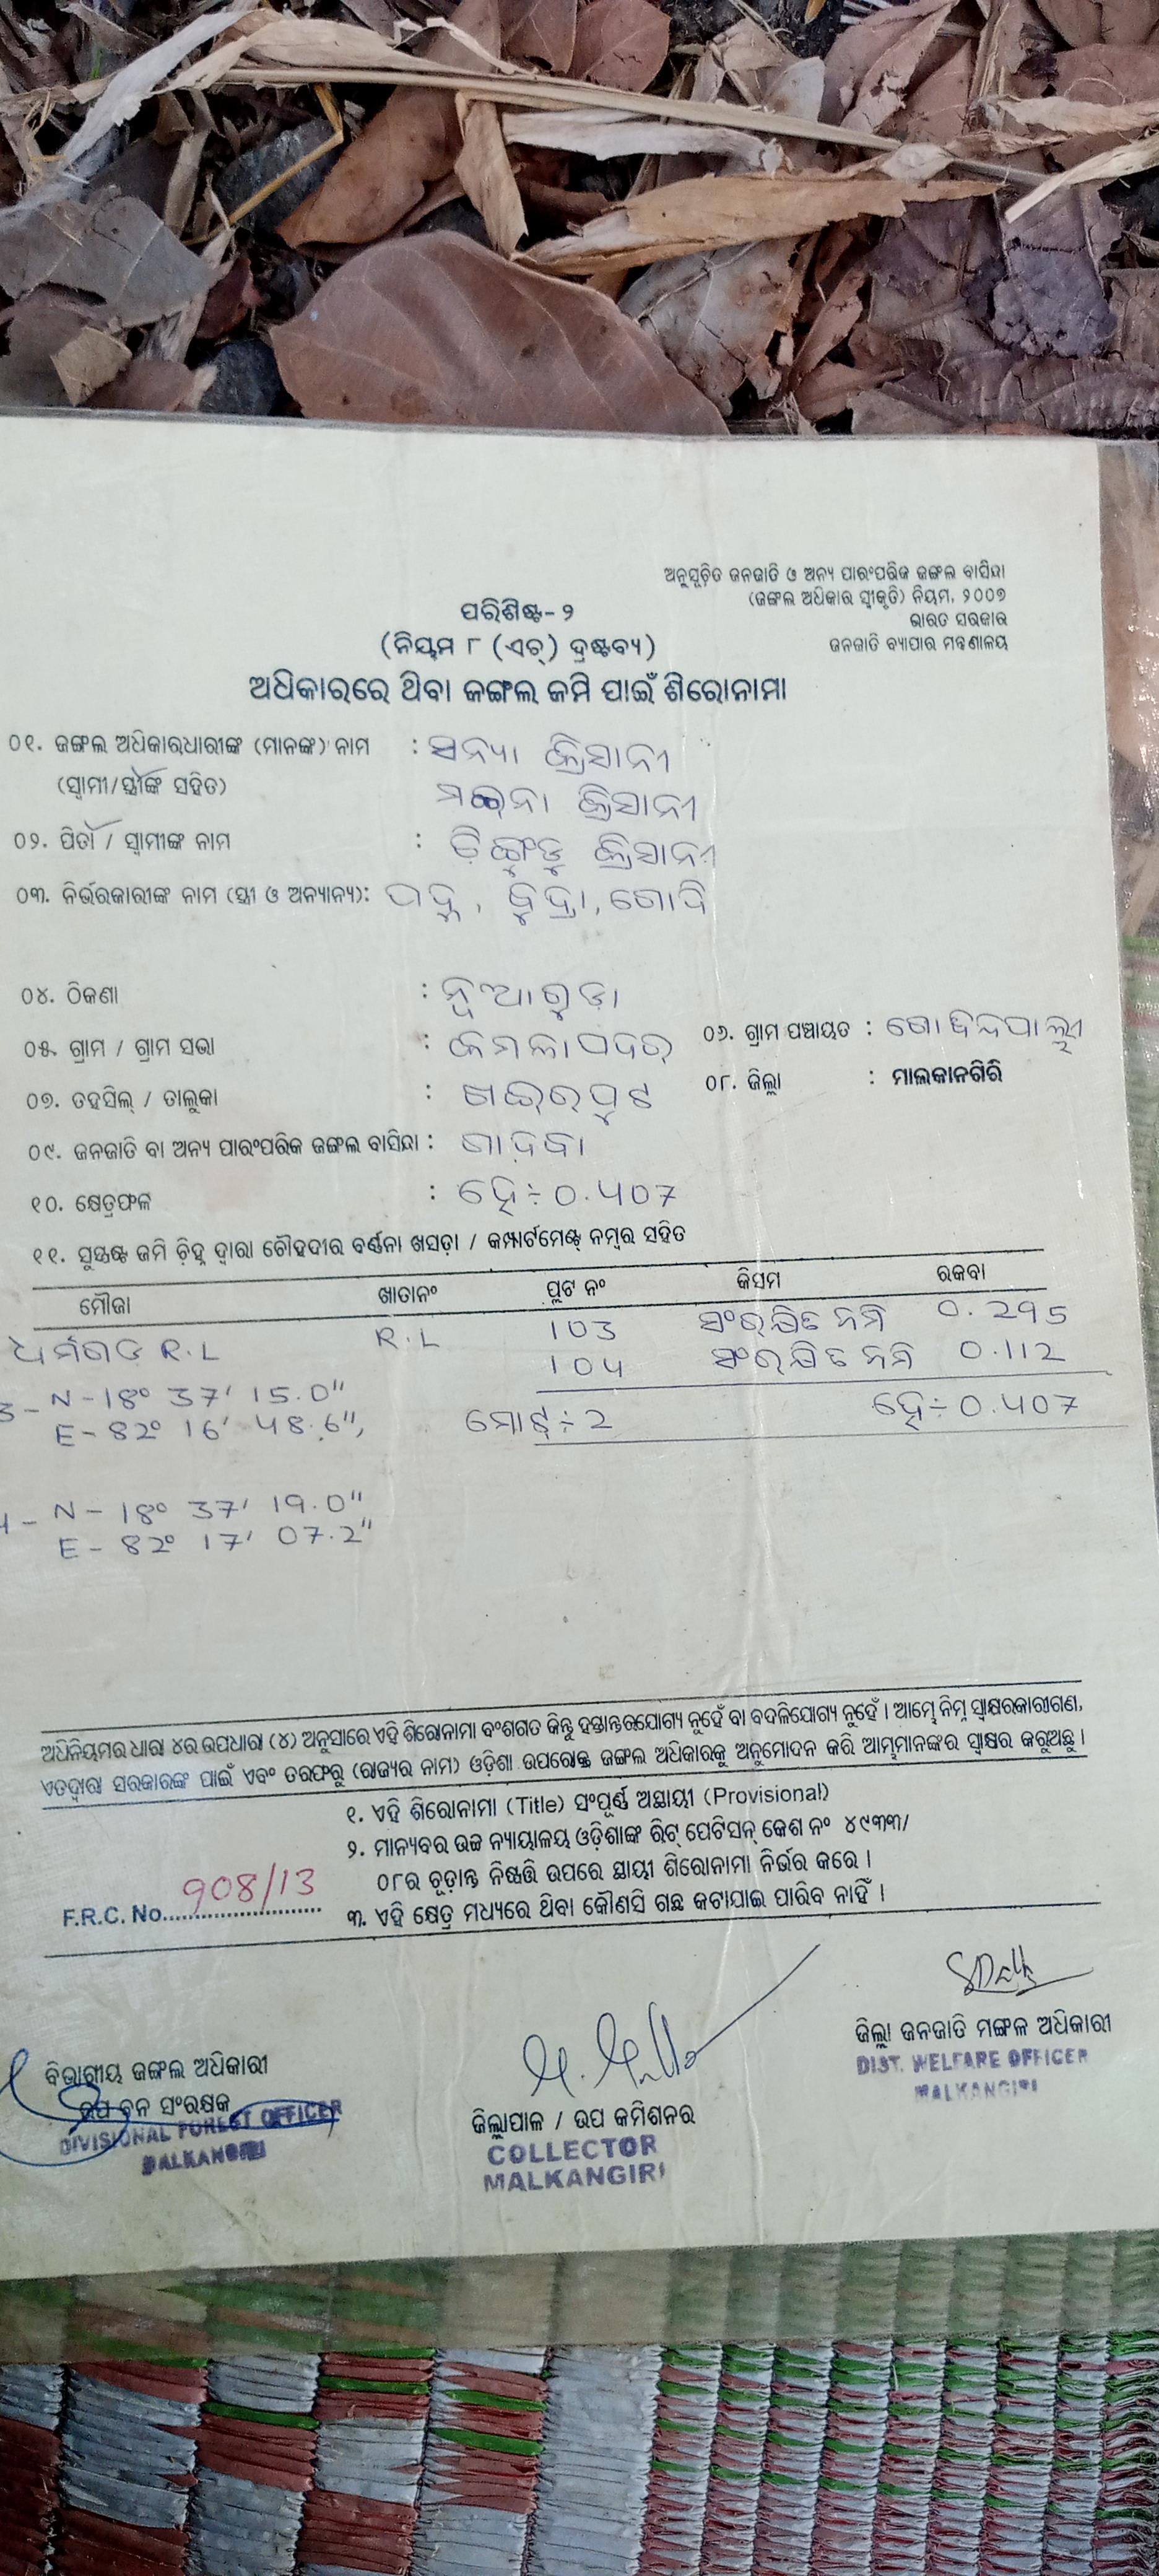 ଅନୁସୂଚିତ ଜନଜାତି ଓ ଅନ୍ୟ ପାରଂପରିକ ଜଙ୍ଗଲ ବାସିନ୍ଦା
(ଜଙ୍ଗଲ ଅଧିକାର ସ୍ୱୀକୃତି) ନିୟମ, ୨୦୦୭
ଭାରତ ସରକାର
ଜନଜାତି ବ୍ୟାପାର ମନ୍ତ୍ରଣାଳୟ
ପରିଶିଷ୍ଟ- ୨
(ନିୟମ ୮ (ଏଚ୍) ଦ୍ରଷ୍ଟବ୍ୟ)
ଅଧିକାରରେ ଥିବା ଜଙ୍ଗଲ ଜମି ପାଇଁ ଶିରୋନାମା
୦୧. ଜଙ୍ଗଲ ଅଧିକାରଧାରୀଙ୍କ (ମାନଙ୍କ) ନାମ : ସନ୍ୟା କ୍ରିସାନୀ
(ସ୍ୱାମୀ/ସ୍ତ୍ରୀଙ୍କ ସହିତ) ମଇନା କ୍ରିସାନୀ
୦୨. ପିତା / ସ୍ୱାମୀଙ୍କ ନାମ : କ୍ରିସାନୀ
୦୩. ନିର୍ଭରକାରୀଙ୍କ ନାମ (ସ୍ତ୍ରୀ ଓ ଅନ୍ୟାନ୍ୟ): ବୁଦ୍ରା, ଗୋପି
୦୪. ଠିକଣା : ନୂଆଗୁଡ଼ା
୦୫. ଗ୍ରାମ / ଗ୍ରାମ ସଭା : କମଳାପଦର ୦୬. ଗ୍ରାମ ପଞ୍ଚାୟତ : ଗୋବିନ୍ଦପାଲ୍ଲୀ
୦୭. ତହସିଲ୍ / ତାଲୁକା : ଖଇରପୁଟ ୦୮. ଜିଲ୍ଲା : ମାଲକାନଗିରି
୦୯. ଜନଜାତି ବା ଅନ୍ୟ ପାରଂପରିକ ଜଙ୍ଗଲ ବାସିନ୍ଦା : ଗାଦବା
୧୦. କ୍ଷେତ୍ରଫଳ : ହେ÷ 0.407
୧୧. ସୁସ୍ପଷ୍ଟ ଜମି ଚିହ୍ନ ଦ୍ୱାରା ଚୌହଦୀର ବର୍ଣ୍ଣନା ଖସଡ଼ା / କମ୍ପାର୍ଟମେଣ୍ଟ ନମ୍ବର ସହିତ
ମୌଜା ଖାତାନଂ ପ୍ଲଟ ନଂ କିସମ ରକବା
ଧର୍ମଗଡ R.L R.L 103 ସଂରକ୍ଷିତ ଜମି 0.295
104 ସଂରକ୍ଷିତ ଜମି 0.112
3 - N - 18° 37' 15.0"
E - 82° 16' 48.6", ମୋଟ÷ 2 ହେ÷ 0.407
4 - N - 18° 37' 19.0"
E - 82° 17' 07.2"
ଅଧିନିୟମର ଧାରା ୪ର ଉପଧାରା (୪) ଅନୁସାରେ ଏହି ଶିରୋନାମା ବଂଶଗତ କିନ୍ତୁ ହସ୍ତାନ୍ତରଯୋଗ୍ୟ ନୁହେଁ ବା ବଦଳିଯୋଗ୍ୟ ନୁହେଁ । ଆମ୍ଭେ ନିମ୍ନ ସ୍ୱାକ୍ଷରକାରୀଗଣ,
ଏତଦ୍ଦ୍ୱାରା ସରକାରଙ୍କ ପାଇଁ ଏବଂ ତରଫରୁ (ରାଜ୍ୟର ନାମ) ଓଡ଼ିଶା ଉପରୋକ୍ତ ଜଙ୍ଗଲ ଅଧିକାରକୁ ଅନୁମୋଦନ କରି ଆମ୍ଭମାନଙ୍କର ସ୍ୱାକ୍ଷର କରୁଅଛୁ ।
୧. ଏହି ଶିରୋନାମା (Title) ସଂପୂର୍ଣ୍ଣ ଅସ୍ଥାୟୀ (Provisional)
୨. ମାନ୍ୟବର ଉଚ୍ଚ ନ୍ୟାୟାଳୟ ଓଡ଼ିଶାଙ୍କ ରିଟ୍ ପେଟିସନ୍ କେଶ ନଂ ୪୯୩୩/
୦୮ର ଚୂଡ଼ାନ୍ତ ନିଷ୍ପତ୍ତି ଉପରେ ସ୍ଥାୟୀ ଶିରୋନାମା ନିର୍ଭର କରେ ।
F.R.C. No. 908/13
୩. ଏହି କ୍ଷେତ୍ର ମଧ୍ୟରେ ଥିବା କୌଣସି ଗଛ କଟାଯାଇ ପାରିବ ନାହିଁ ।
ଜିଲ୍ଲା ଜନଜାତି ମଙ୍ଗଳ ଅଧିକାରୀ
DIST. WELFARE OFFICER
MALKANGIRI
ବିଭାଗୀୟ ଜଙ୍ଗଲ ଅଧିକାରୀ
ଉପ ବନ ସଂରକ୍ଷକ
DIVISIONAL FOREST OFFICER
MALKANGIRI
ଜିଲ୍ଲାପାଳ / ଉପ କମିଶନର
COLLECTOR
MALKANGIRI